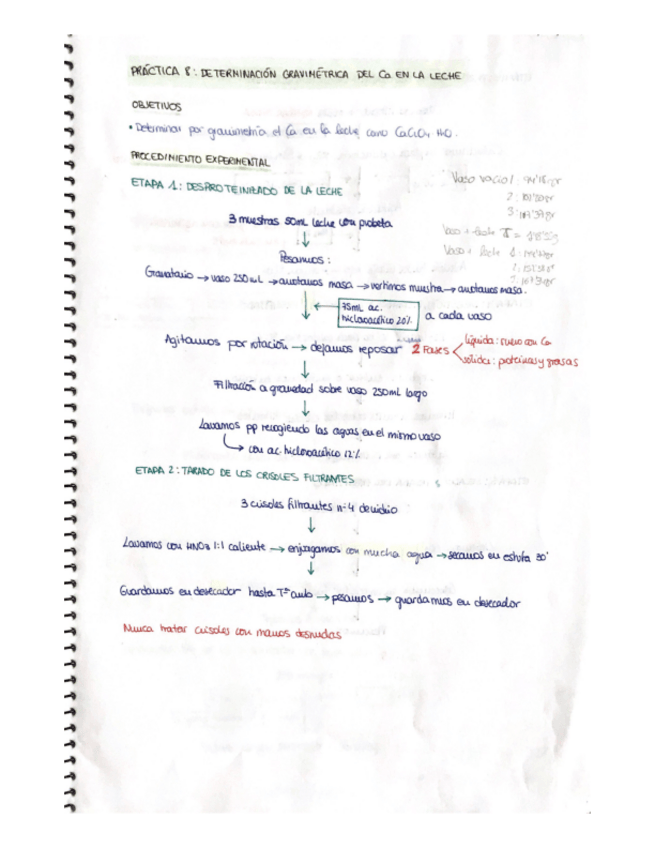 PRÁCTICA 8: DETERMINACIÓN GRAVIMÉTRICA DEL Ca EN LA LECHE
OBJETIVOS
• Determinar por gravimetría el Ca en la leche como CaC2O4 H2O.
PROCEDIMIENTO EXPERIMENTAL
ETAPA 1: DESPROTEINIZADO DE LA LECHE
Vaso vacío 1:
2:
3:
3 muestras 50mL leche con probeta
Vaso + leche
Pesamos:
Vaso + leche
Granatario → vaso 250mL → anotamos masa → vertimos muestra → anotamos masa.
75mL ac. tricloroacético 20% a cada vaso
Agitamos por rotación → dejamos reposar 2 Fases
líquida: suero con Ca
sólida: proteínas y grasas
Filtración a gravedad sobre vaso 250mL largo
Lavamos pp recogiendo las aguas en el mismo vaso
→ con ac. tricloroacético 12%
ETAPA 2: TARADO DE LOS CRISOLES FILTRANTES
3 crisoles filtrantes nº4 de vidrio
Lavamos con HNO3 1:1 caliente → enjuagamos con mucha agua → secamos en estufa 30'
Guardamos en desecador hasta Tª amb → pesamos → guardamos en desecador
Nunca tratar crisoles con manos desnudas